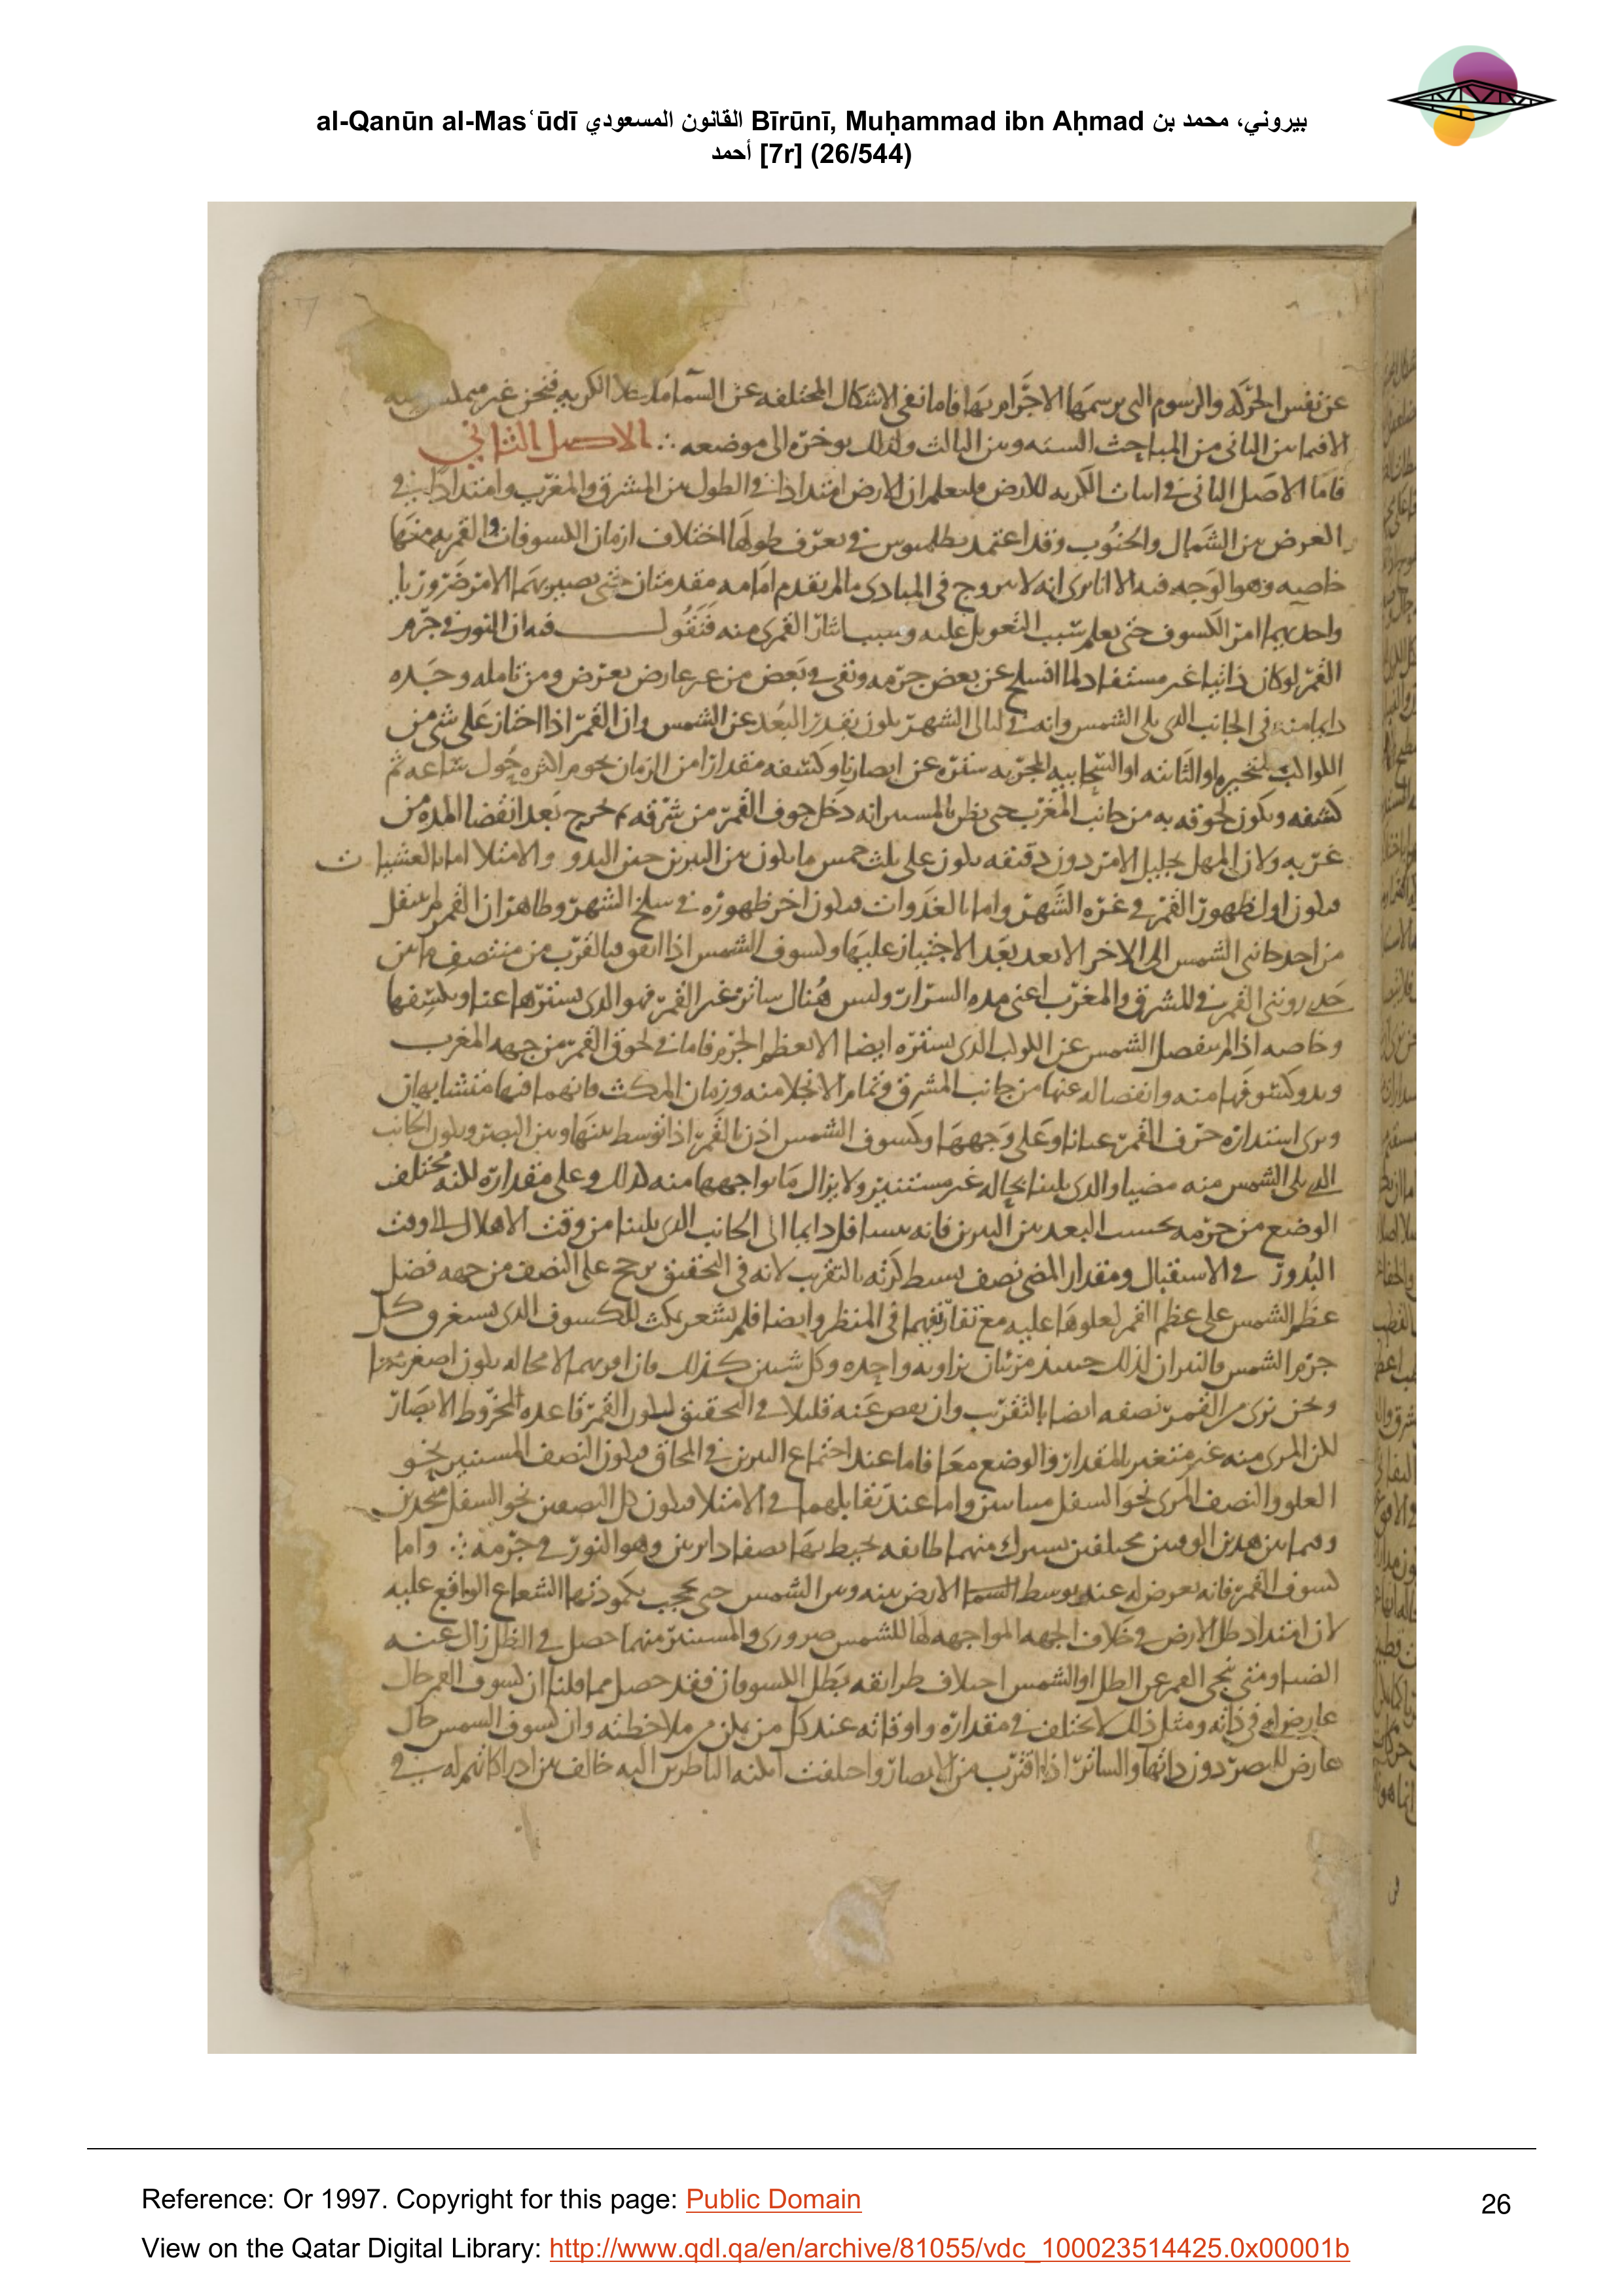 al-Qanūn al-Mas‘ūdī القانون المسعودي Bīrūnī, Muḥammad ibn Aḥmad بيروني، محمد بن
أحمد [7r] (26/544)
7
عن نفس الحركه والرسوم التى يرسمها الاجرام بها فاما نفى الاشكال المختلفه عن السما ما خلا الكريه فنحن غير
الاصل الثاني
فاما الاصل الثانى فى اثبات الكريه للارض فليعلم ان للارض امتدادا فى الطول بين المشرق والمغرب وامتدادا فى
العرض بين الشمال والجنوب وقد اعتمد بطلميوس فى تعرف طولها اختلاف ازمان الكسوفات والقمريه منها
خاصيه وهو الوجه فيه الا انا نرى انه لا يروج فى المبادى ما لم يتقدم امامه مقدمتان حتى يصير بهما الامر ضروريا
واحديهما امر الكسوف حتى يعلم سبب التعويل عليه وسبب القمرى منه فنقول فيه ان النور فى جرم
القمر لو كان ذاتيا غير مستفاد لما انسلخ عن بعض جرمه وبقى فى بعض من غير عارض يعرض ومن تامله وجده
دايما منه فى الجانب الذى يلى الشمس وانه فى ليالى الشهر يكون بقدر البعد عن الشمس وان القمر اذا اجتاز على شى من
الكواكب المتحيره او الثابته او السحابيه المجريه ستره عن ابصارنا وكسفه مقدارا من الزمان يحوم اكثره حول ساعه ثم
كشفه ويكون لحوقه به من جانب المغرب حتى يظن بالمستسر انه دخل جوف القمر من شرقه ثم خرج بعد انقضا المده من
غربيه ولان المهل بجليل الامر دون دقيقه يكون على ثلث خمس ما يكون بين النيرين حين البدو والامتلا اما بالعشيات
فيكون اول ظهور القمر فى غره الشهر واما بالغدوات فيكون اخر ظهوره فى سلخ الشهر وظاهر ان القمر لم ينتقل
من احد جانبى الشمس الى الاخر الا بعد بعد الاجتياز عليها وكسوف الشمس اذا اتفق فبالقرب من منتصف ما بين
حدى رويتى القمر فى المشرق والمغرب اعنى مده السرار وليس هناك ساتر غير القمر فهو الذى يسترها عنا ويكسفها
وخاصه اذا لم ينفصل الشمس عن الكوكب الذى يستره ايضا الا بعظم الجرم فاما فى لحوق القمر من جهه المغرب
وبدو كسوفها منه وانفصاله عنها من جانب المشرق وتمام الانجلا منه وزمان المكث فانهما فيها متشابهان
ويرى استداره حرف القمر عيانا وعلى وجهها وكسوف الشمس اذن بالقمر اذا توسط بينها وبين البصر ويكون الجانب
الذى يلى الشمس منه مضيا والذى يلينا بحاله غير مستنير ولا يزال ما يواجهها منه كذلك وعلى مقداره لكنه مختلف
الوضع من جرمه بحسب البعد بين النيرين فانه يسافل دايما الى الجانب الذى يلينا من وقت الاهلال الى وقت
البدور فى الاستقبال ومقدار المضى نصف بسيط كرته بالتقريب لانه فى التحقيق يرجح على النصف من جهه فضل
عظم الشمس على عظم القمر لعلوها عليه مع تقاربهما فى المنظر وايضا فلم يشعر بمكث للكسوف الذى يستغرق كل
جرم الشمس فالنيران لذلك حينيذ مرئيان بزاويه واحده وكل شيين كذلك فان اقربهما لا محاله يكون اصغرهما
ونحن نرى من القمر نصفه ايضا بالتقريب وان نقص عنه قليلا فى التحقيق ليكون القمر قاعده لمخروط الابصار
لكن المرى منه غير متغير بالمقدار والوضع معا فاما عند اجتماع النيرين فى المحاق فيكون النصف المستنير نحو
العلو والنصف المرى نحو السفل متباينين واما عند تقابلهما فى الامتلا فيكون كل النصفين نحو السفل متحدين
وفيما بين هذين الوقتين مختلفين يشترك منهما طايفه يحيط بها نصفا دايرتين وهو النور فى جرمه ∴ واما
كسوف القمر فانه يعرض له عند توسط السما الارض بينه وبين الشمس حتى يحجب بكمودتها الشعاع الواقع عليه
لان امتداد ظل الارض فى خلاف الجهه المواجهه لها للشمس ضرورى والمستنير منهما حصل فى الظل زال عنه
الضيا ومتى نحى القمر عن الظل او الشمس اختلاف طرايقه بطل الكسوفان فقد حصل مما قلنا ان كسوف القمر حال
عارض له فى ذاته ومثل ذلك لا يختلف فى مقداره واوقاته عند كل من يمكن من ملاحظته وان كسوف الشمس حال
عارض للبصر دون ذاتها والساتر اذا اقترب من الابصار واختلفت امكنه الناظرين اليه خالف بين ادراكاتهم له فى
Reference: Or 1997. Copyright for this page: Public Domain
26
View on the Qatar Digital Library: http://www.qdl.qa/en/archive/81055/vdc_100023514425.0x00001b